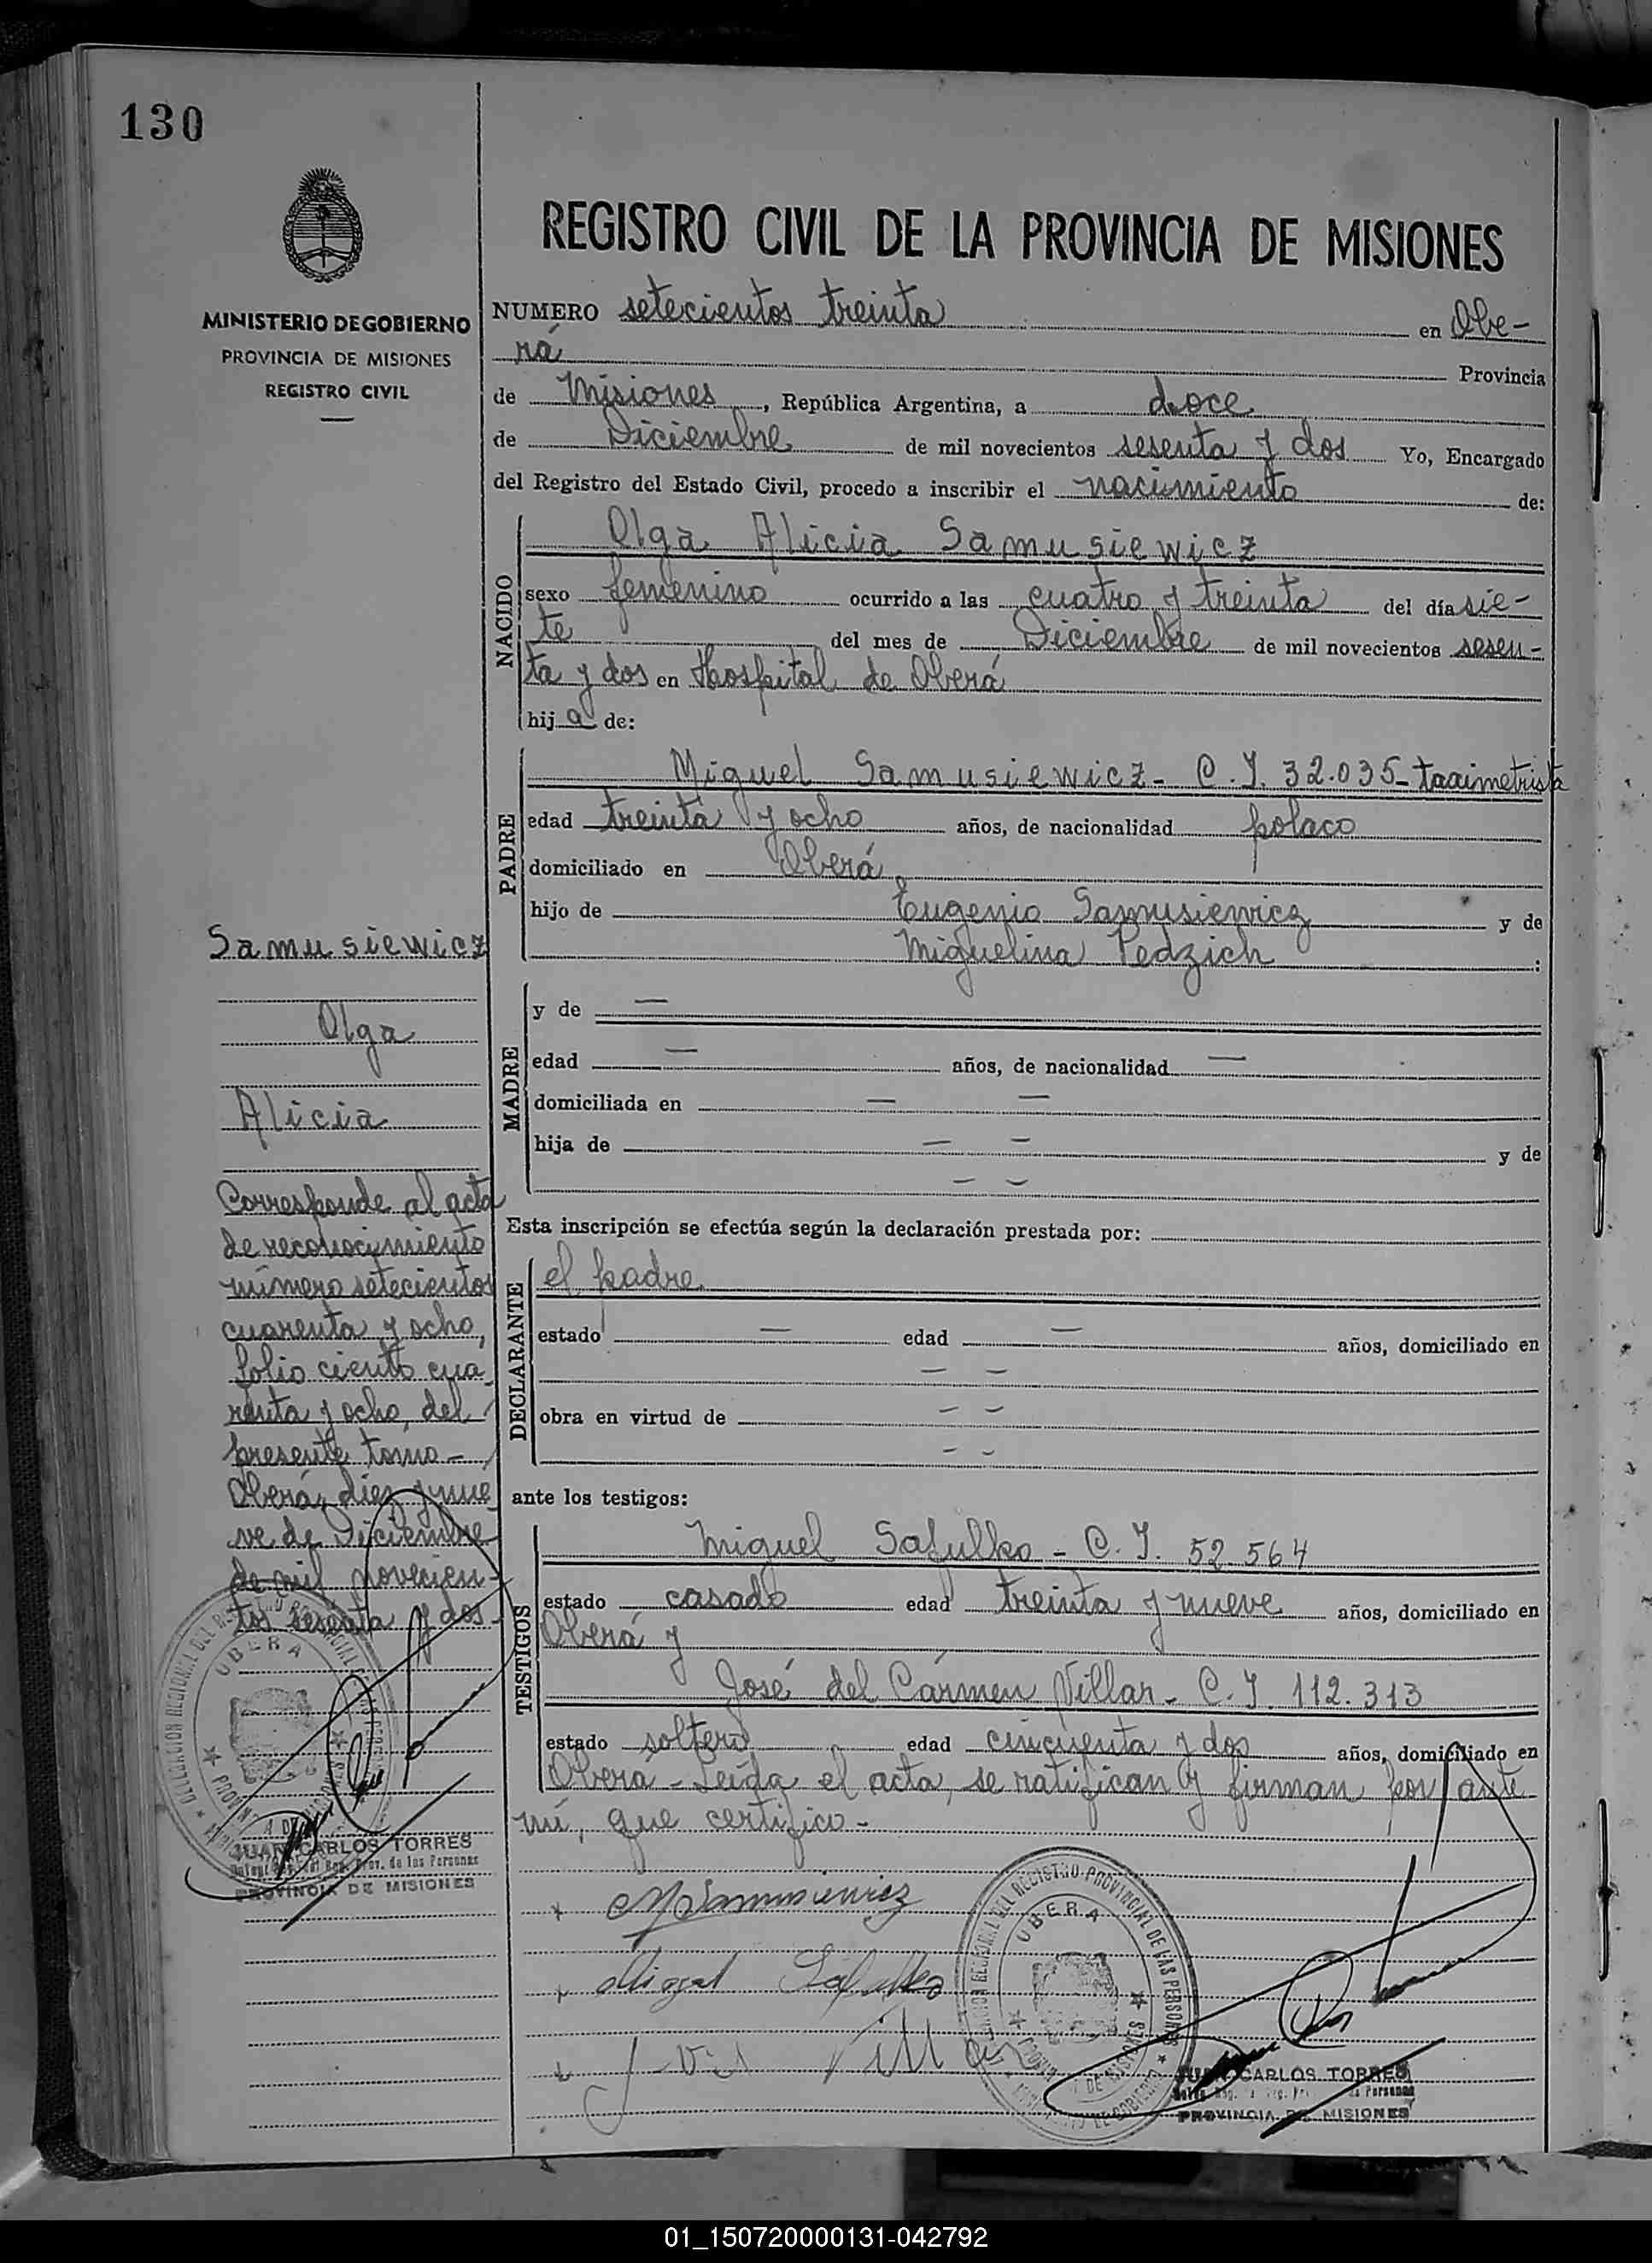 130
MINISTERIO DE GOBIERNO
PROVINCIA DE MISIONES
REGISTRO CIVIL
REGISTRO CIVIL DE LA PROVINCIA DE MISIONES
NUMERO setecientos treinta en Obe-
rá Provincia
de Misiones, República Argentina, a doce
de Diciembre de mil novecientos sesenta y dos Yo, Encargado
del Registro del Estado Civil, procedo a inscribir el nacimiento de:
NACIDO
Olga Alicia Samusiewicz
sexo femenino ocurrido a las cuatro y treinta del día sie-
te del mes de Diciembre de mil novecientos sesen-
ta y dos en Hospital de Oberá
hija de:
PADRE
Miguel Samusiewicz - C.I. 32.035 - taximetrista
edad treinta y ocho años, de nacionalidad polaco
domiciliado en Oberá
hijo de Eugenio Samusiewicz y de
Miguelina Pedzich :
MADRE
y de —
edad — años, de nacionalidad —
domiciliada en — —
hija de — — y de
— —
Esta inscripción se efectúa según la declaración prestada por:
DECLARANTE
el padre
estado — edad — años, domiciliado en
— —
obra en virtud de — —
— —
ante los testigos:
TESTIGOS
Miguel Safulko - C.I. 52.564
estado casado edad treinta y nueve años, domiciliado en
Oberá y
José del Cármen Villar - C.I. 112.313
estado soltero edad cincuenta y dos años, domiciliado en
Oberá - Leída el acta, se ratifican y firman por ante
mí, que certifico -
Samusiewicz
Miguel Safulko
José Villar
OBERA
JUAN CARLOS TORRES
PROVINCIA DE MISIONES
Samusiewicz
Olga
Alicia
Corresponde al acta
de reconocimiento
número setecientos
cuarenta y ocho,
folio ciento cua-
renta y ocho, del
presente tomo -
Oberá, diez y nue
ve de Diciembre
de mil novecien-
tos sesenta y dos -
OBERA
JUAN CARLOS TORRES
PROVINCIA DE MISIONES
01_150720000131-042792